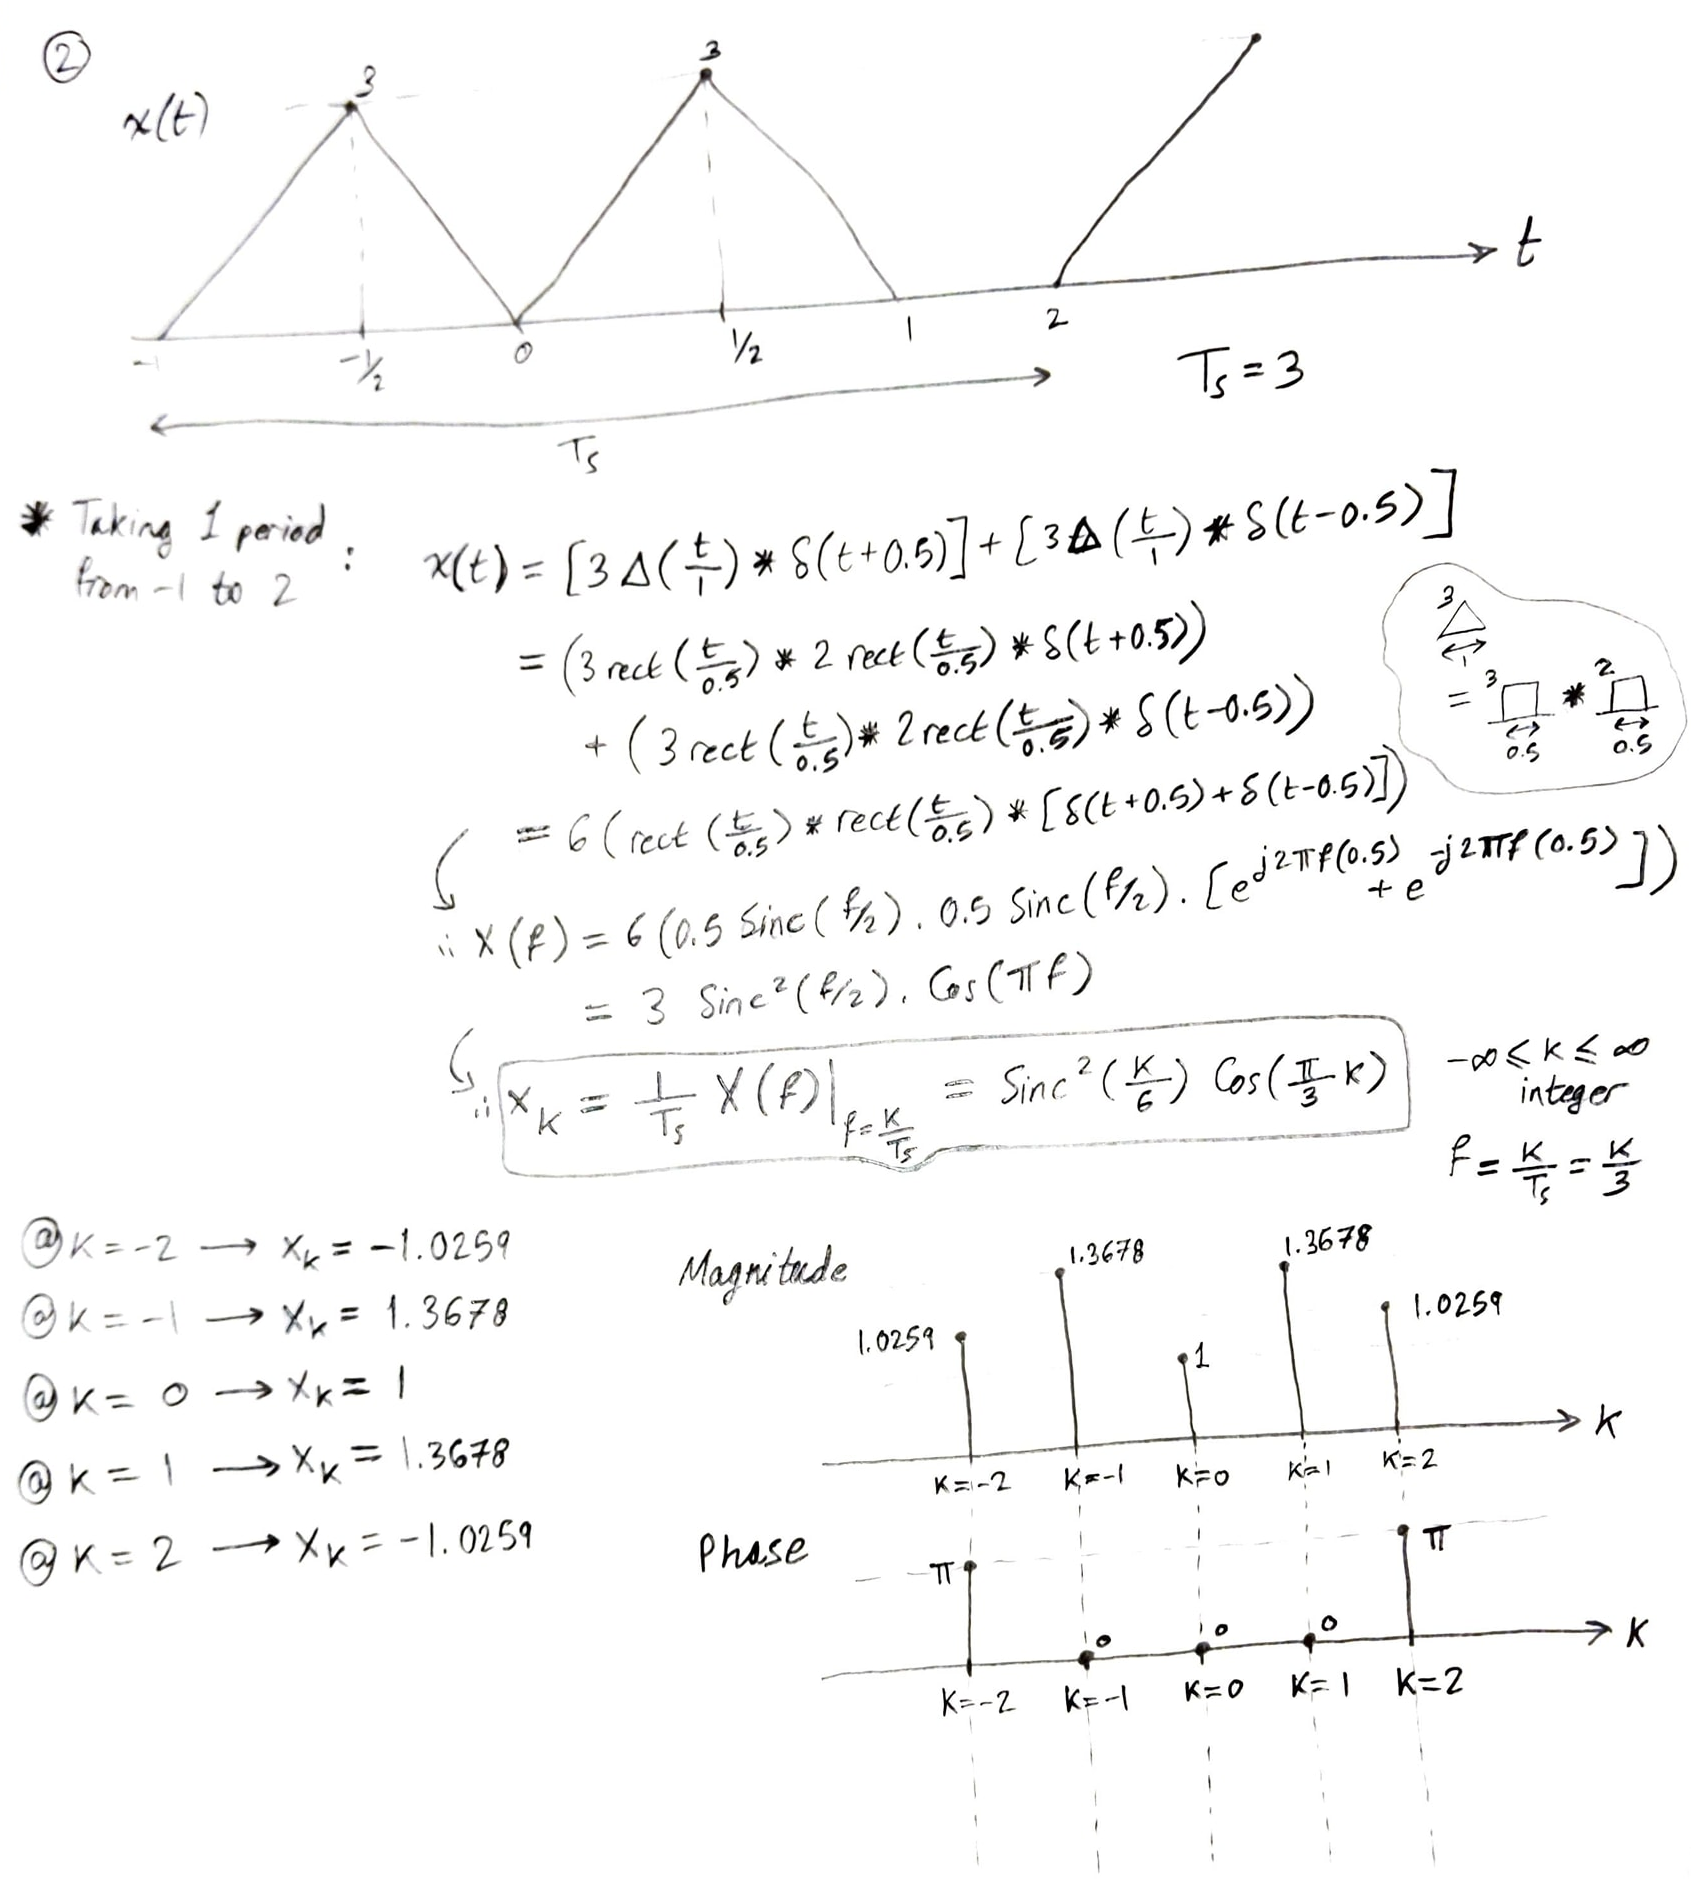 ②
x(t)
3
3
t
-1
-1/2
0
1/2
1
2
Ts = 3
Ts
* Taking 1 period
from -1 to 2 :
x(t) = [3 Δ(t/1) * δ(t+0.5)] + [3 Δ(t/1) * δ(t-0.5)]
= (3 rect(t/0.5) * 2 rect(t/0.5) * δ(t+0.5))
+ (3 rect(t/0.5) * 2 rect(t/0.5) * δ(t-0.5))
3
1
= 3 * 2
0.5 0.5
= 6(rect(t/0.5) * rect(t/0.5) * [δ(t+0.5)+δ(t-0.5)])
∴ X(f) = 6(0.5 Sinc(f/2). 0.5 Sinc(f/2). [e^j2πf(0.5) + e^-j2πf(0.5)])
= 3 Sinc²(f/2). Cos(πf)
∴ X_K = 1/Ts X(f)|f=K/Ts = Sinc²(K/6) Cos(π/3 K)
-∞ ≤ K ≤ ∞
integer
f = K/Ts = K/3
@ K = -2 → X_K = -1.0259
@ K = -1 → X_K = 1.3678
@ K = 0 → X_K = 1
@ K = 1 → X_K = 1.3678
@ K = 2 → X_K = -1.0259
Magnitude
1.0259
1.3678
1
1.3678
1.0259
K
K=-2 K=-1 K=0 K=1 K=2
Phase
π
0
0
0
π
K
K=-2 K=-1 K=0 K=1 K=2